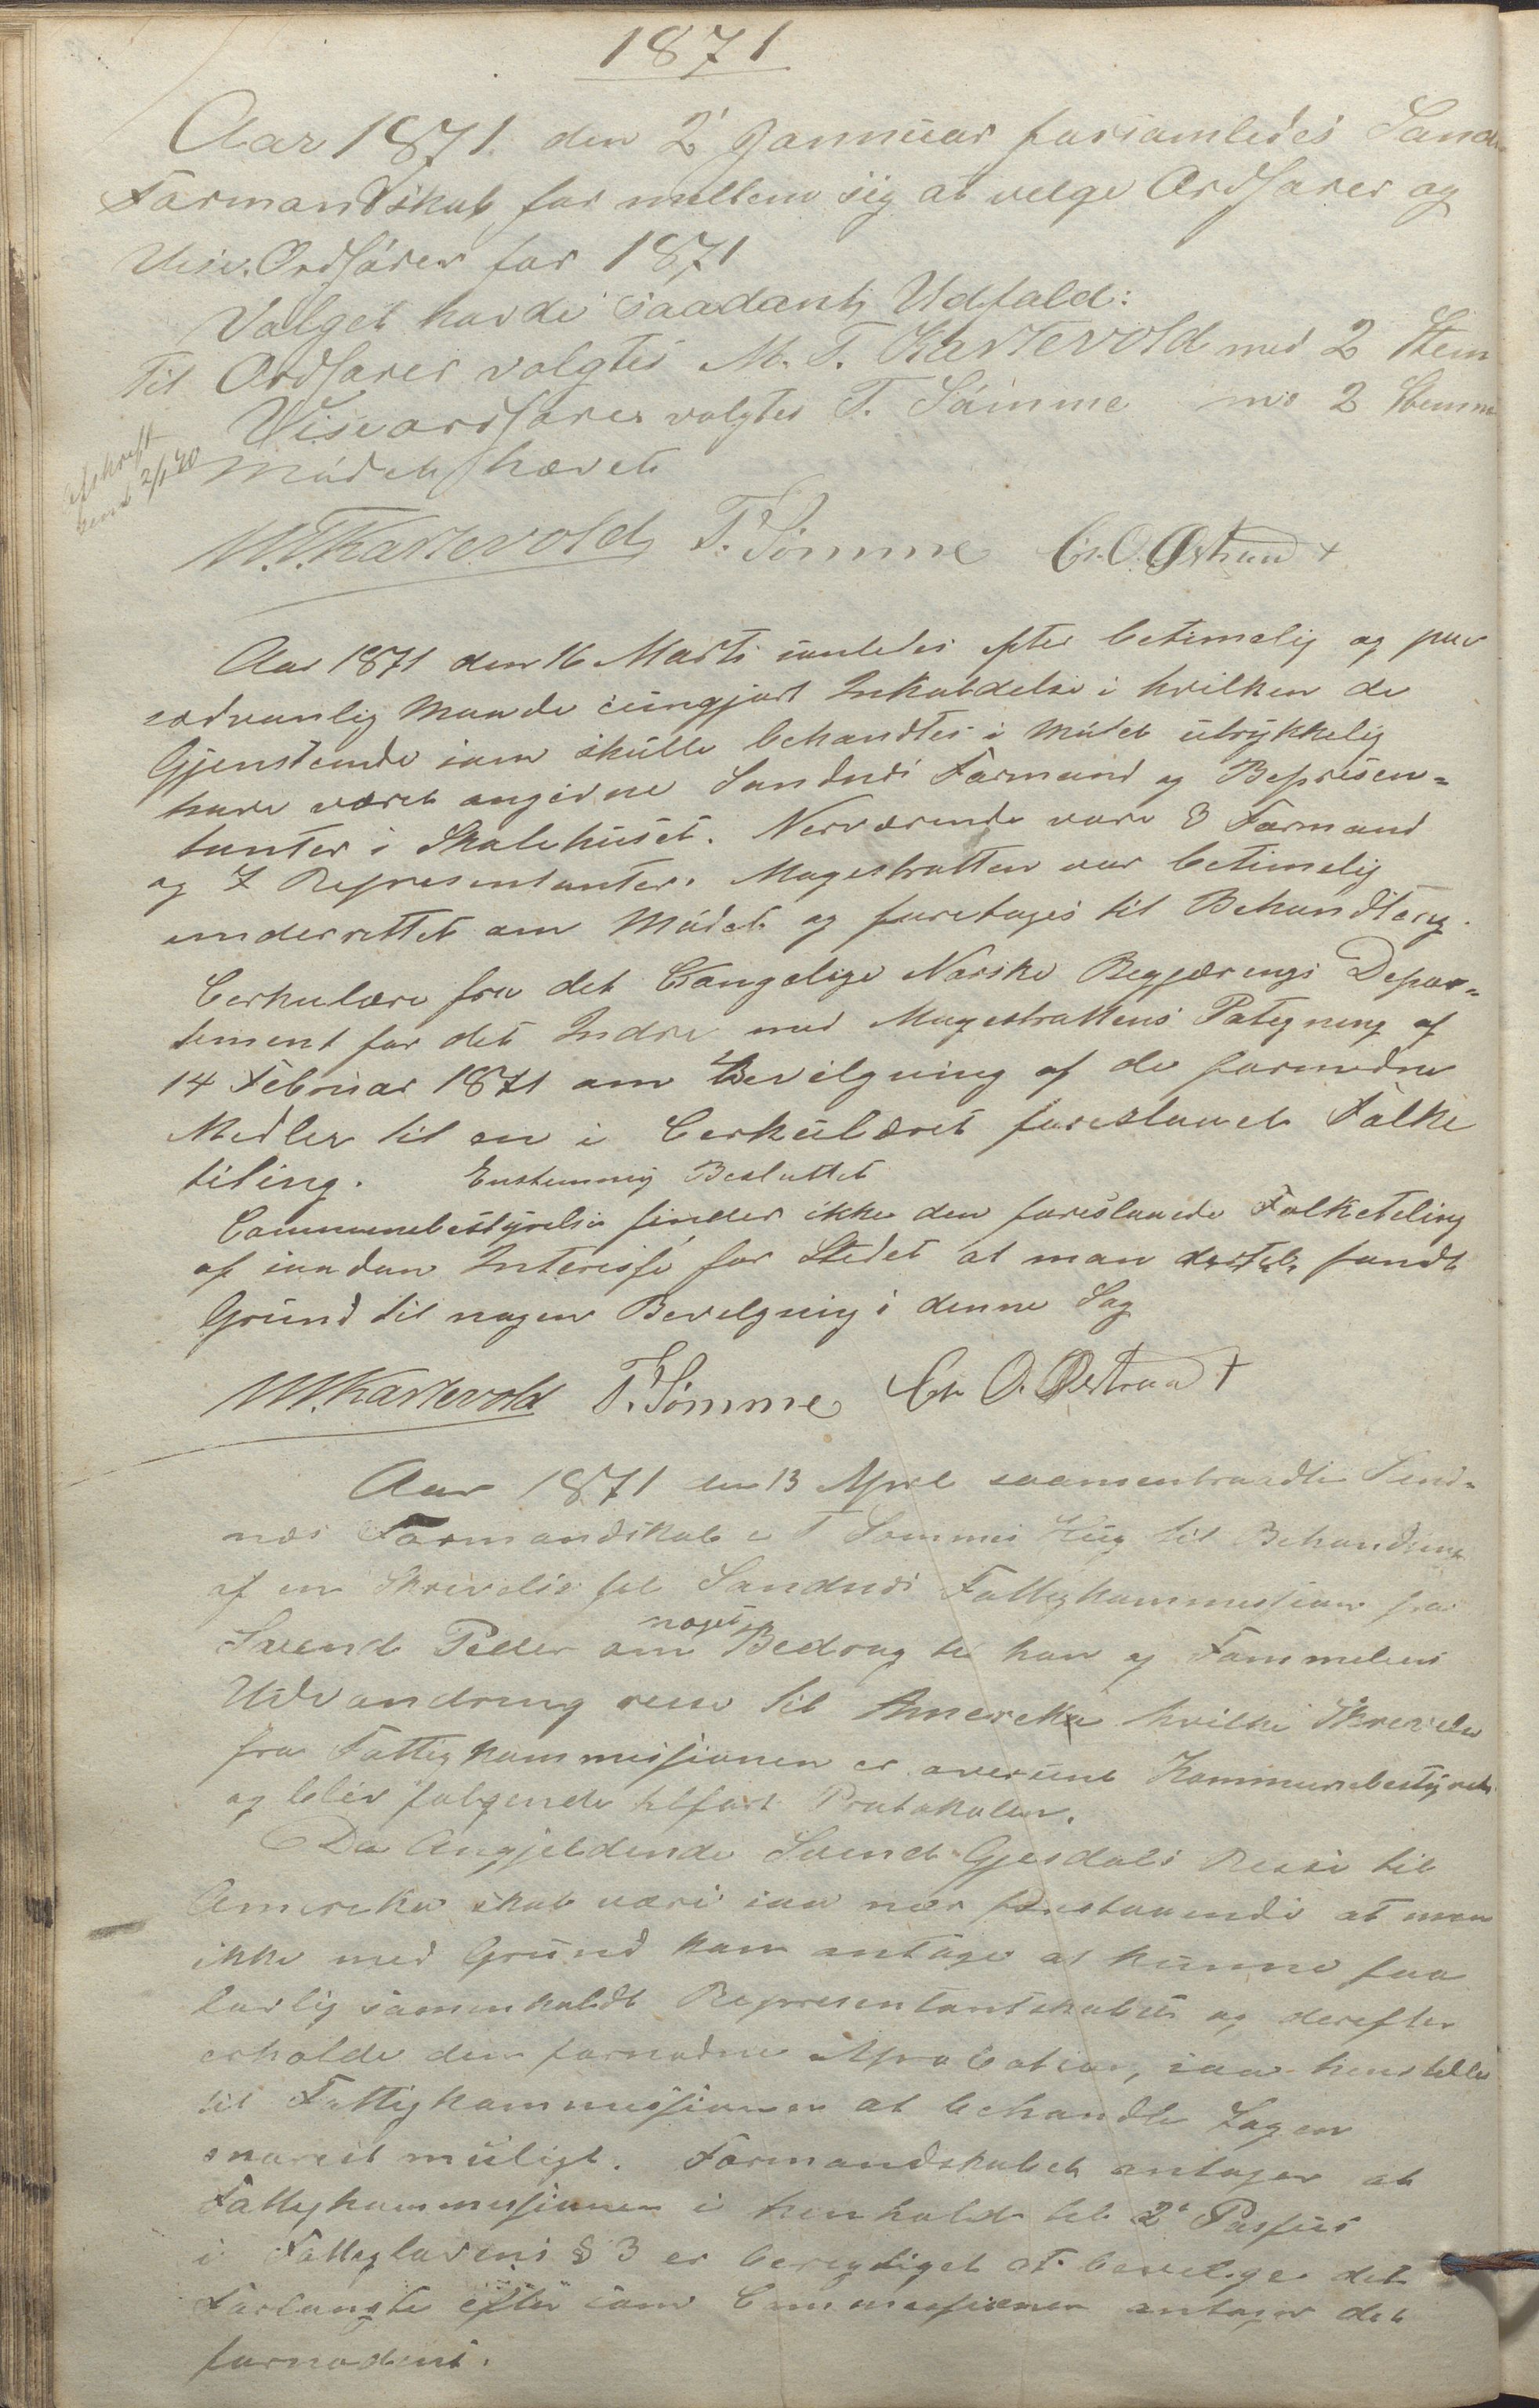 1871
Aar 1871 den 2' Januuar forsamledes Sand
Formandskab for mellem sig at velge Ordforer og
Vise.Ordförer for 1871
Valget havde saadant Udfald:
Til Ordforer valgtes M. T. Kartevold med 2 Stem
Viseordforer valgtes T. Sömme med 2 Stemm
Afskrift
sendt 2/1 90
Mödet hævet
M.T.Kartevold T. Sömme Ch. O. Østraadt
Aar 1871 den 16 Marts samledes efter betimelig og paa
sædvanlig Maade kungjort Inkaldelse i hvilken de
Gjenstande som skulle behandles i Mötet utrykkelig
have været angivne Sandnes Formænd og Represen=
tanter i Skolehuset. Nerværende vare 3 Formænd
og 7 Representanter. Magestratten var betimelig
underrettet om Mödet og foretoges til Behandling.
Cerkulære fra det Congelige Norske Regjærings Depar=
tement for det Indre med Magestrattens Pategning af
14 Februar 1871 om Bevilgning af de fornødne
Medler til en i Cerkulæret foreslaaet Folke
teling. Enstemmig Besluttet
Communebestyrelse finder ikke den foreslaaede Folketeling
af saadan Interesse for Stedet at man dertil fandt
Grund til nogen Bevelgning i denne Sag
M.T.Kartevold T. Sömme Ch O. Østraadt
Aar 1871 den 13 April sammentraadte Sand=
nes Formandskab i T Sommes Hus til Behandling
af en Skrivelse til Sandnes Fattigkommission fra
Svend Peder om noget Bedrag til han og Fammeliens
Udvandring reise til Amereka hvilke Skrivelse
fra Fattigkommissionen er oversent Kommunebestyrels
og blev folgende tilfort Protokolen.
Da Angjeldende Svend Gjesdals Reise til
Amereka skal være saa nær forestaaende at man
ikke med Grund kan antage at kunne faa
lovlig samenkaldt Representantskabet og derefter
erholde den fornødne Aprobation, saa henstilles
til Fattigkommissionen at behandle Sagen
snarest muligt. Formandskabet antager at
Fattigkommissionen i henhold til 2' Passus
i Fattiglovens § 3 er beregtiget at bevelge det
Forlangte efter som Commissionen antager det
fornødent.